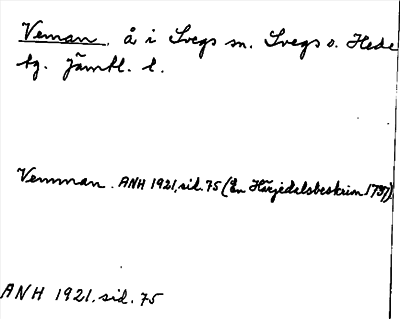 Veman. å i Svegs sn. Svegs o. Hede
tg. Jämtl. l.
Vemman. ANH 1921, sid. 75 (En Härjedalsbeskrivn 1797)
ANH 1921. sid. 75